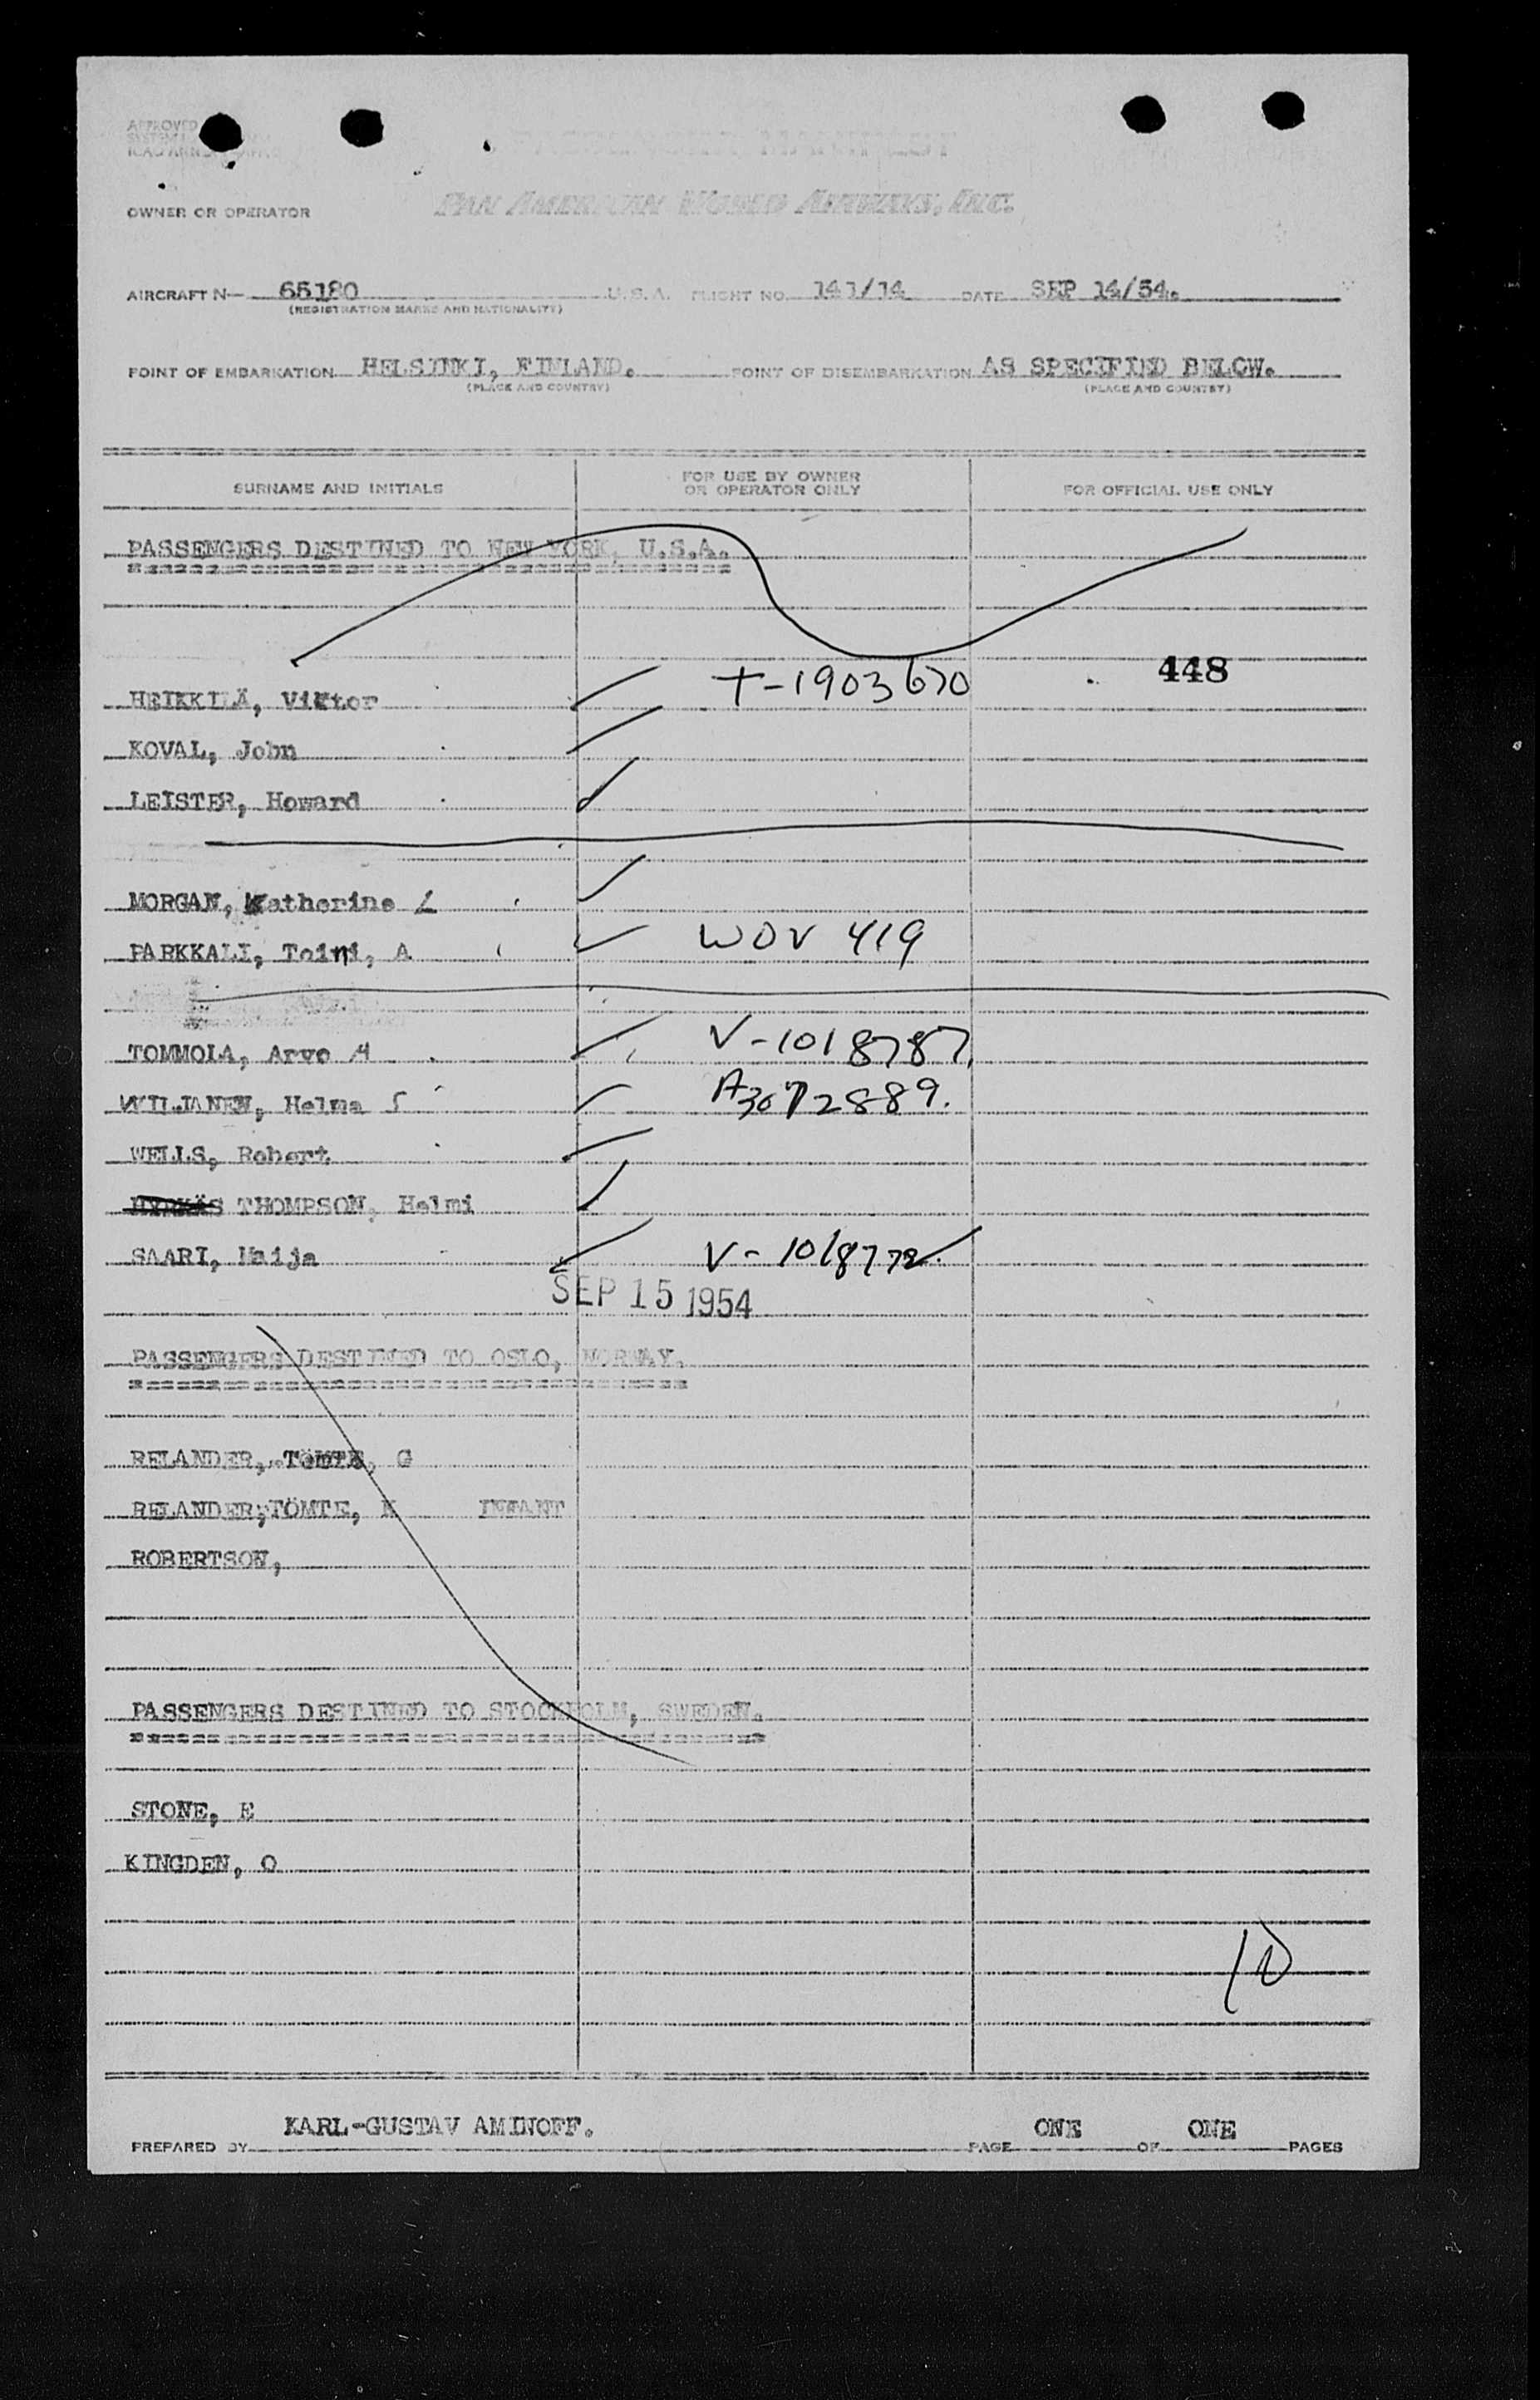 APPROVED
OWNER OR OPERATOR PAN AMERICAN WORLD AIRWAYS, INC.
AIRCRAFT N— 65180 U.S.A. FLIGHT NO. 141/14 DATE SEP 14/54.
(REGISTRATION MARKS AND NATIONALITY)
POINT OF EMBARKATION HELSINKI, FINLAND. POINT OF DISEMBARKATION AS SPECIFIED BELOW.
(PLACE AND COUNTRY) (PLACE AND COUNTRY)
SURNAME AND INITIALS FOR USE BY OWNER OR OPERATOR ONLY FOR OFFICIAL USE ONLY
PASSENGERS DESTINED TO NEW YORK, U.S.A.
448
HEIKKILÄ, Viktor T-1903670
KOVAL, John
LEISTER, Howard
MORGAN, Katherine L
PARKKALI, Toini, A WOV 419
TOMMOLA, Arvo M V-1018787
WILJANEN, Helma S A3072889.
WELLS, Robert
THOMPSON, Helmi
SAARI, Maija V-1018772
SEP 15 1954
PASSENGERS DESTINED TO OSLO, NORWAY.
RELANDER, TÖMTE, G
RELANDER, TÖMTE, K INFANT
ROBERTSON,
PASSENGERS DESTINED TO STOCKHOLM, SWEDEN.
STONE, E
KINGDEN, O
10
KARL-GUSTAV AMINOFF. ONE ONE
PREPARED BY PAGE OF PAGES